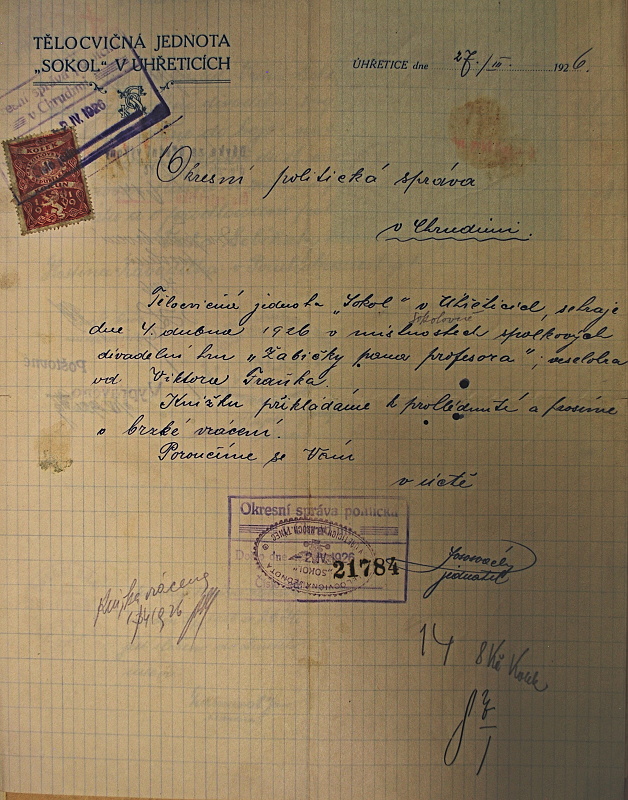 TĚLOCVIČNÁ JEDNOTA
„SOKOL“ V ÚHŘETICÍCH
ÚHŘETICE dne 27./III. 1926.
v Chrudimi
IV. 1926
KOLEK
Okresní politická správa
v Chrudimi.
Tělocvičná jednota „Sokol“ v Úhřeticích, sehraje
Sokolovně
dne 4. dubna 1926 v místnostech spolkových
divadelní hru „Žabičky pana profesora“; veselohra
od Viktora
Knížku přikládáme k prohlédnutí a prosíme
o brzké vrácení.
Poroučíme se Vám
v úctě
Okresní správa politická
2. IV. 1926
21784
„SOKOL“
jednatel
Knížka vrácena
14
8 Kč Kolek